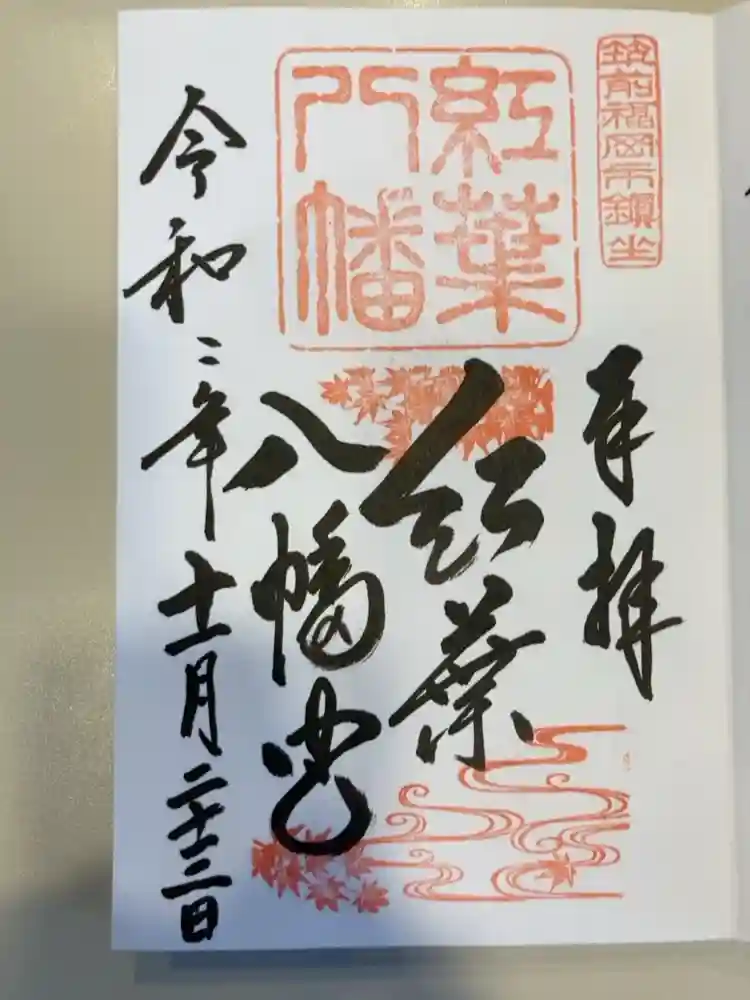 筑前福岡市鎮坐
奉拝
紅葉
八幡
紅葉
八幡宮
令和二年十一月二十三日